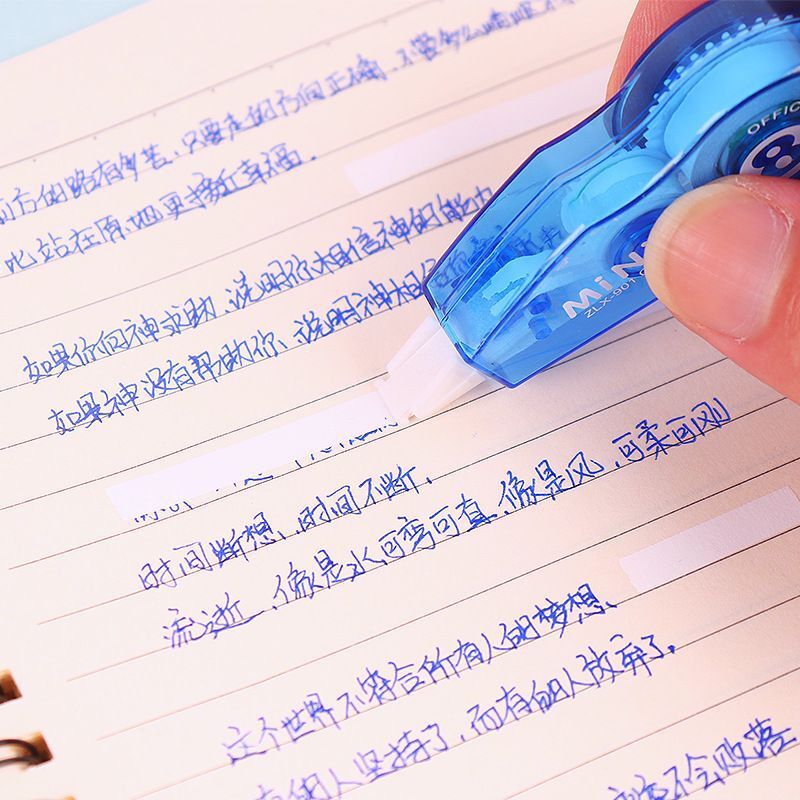 前方的路有多苦，只要走的方向正确，不管多么崎岖不
比站在原地更接近幸福。
如果你向神求助，说明你相信神的能力
如果神没有帮助你、说明神相信你
时间断想，时间不断。
流逝，像是水可弯可直，像是风，可柔可刚
这个世界不符合所有人的梦想、
有的人坚持了，而有的人放弃了。
不会败落
OFFIC
MiNi
ZLX-901